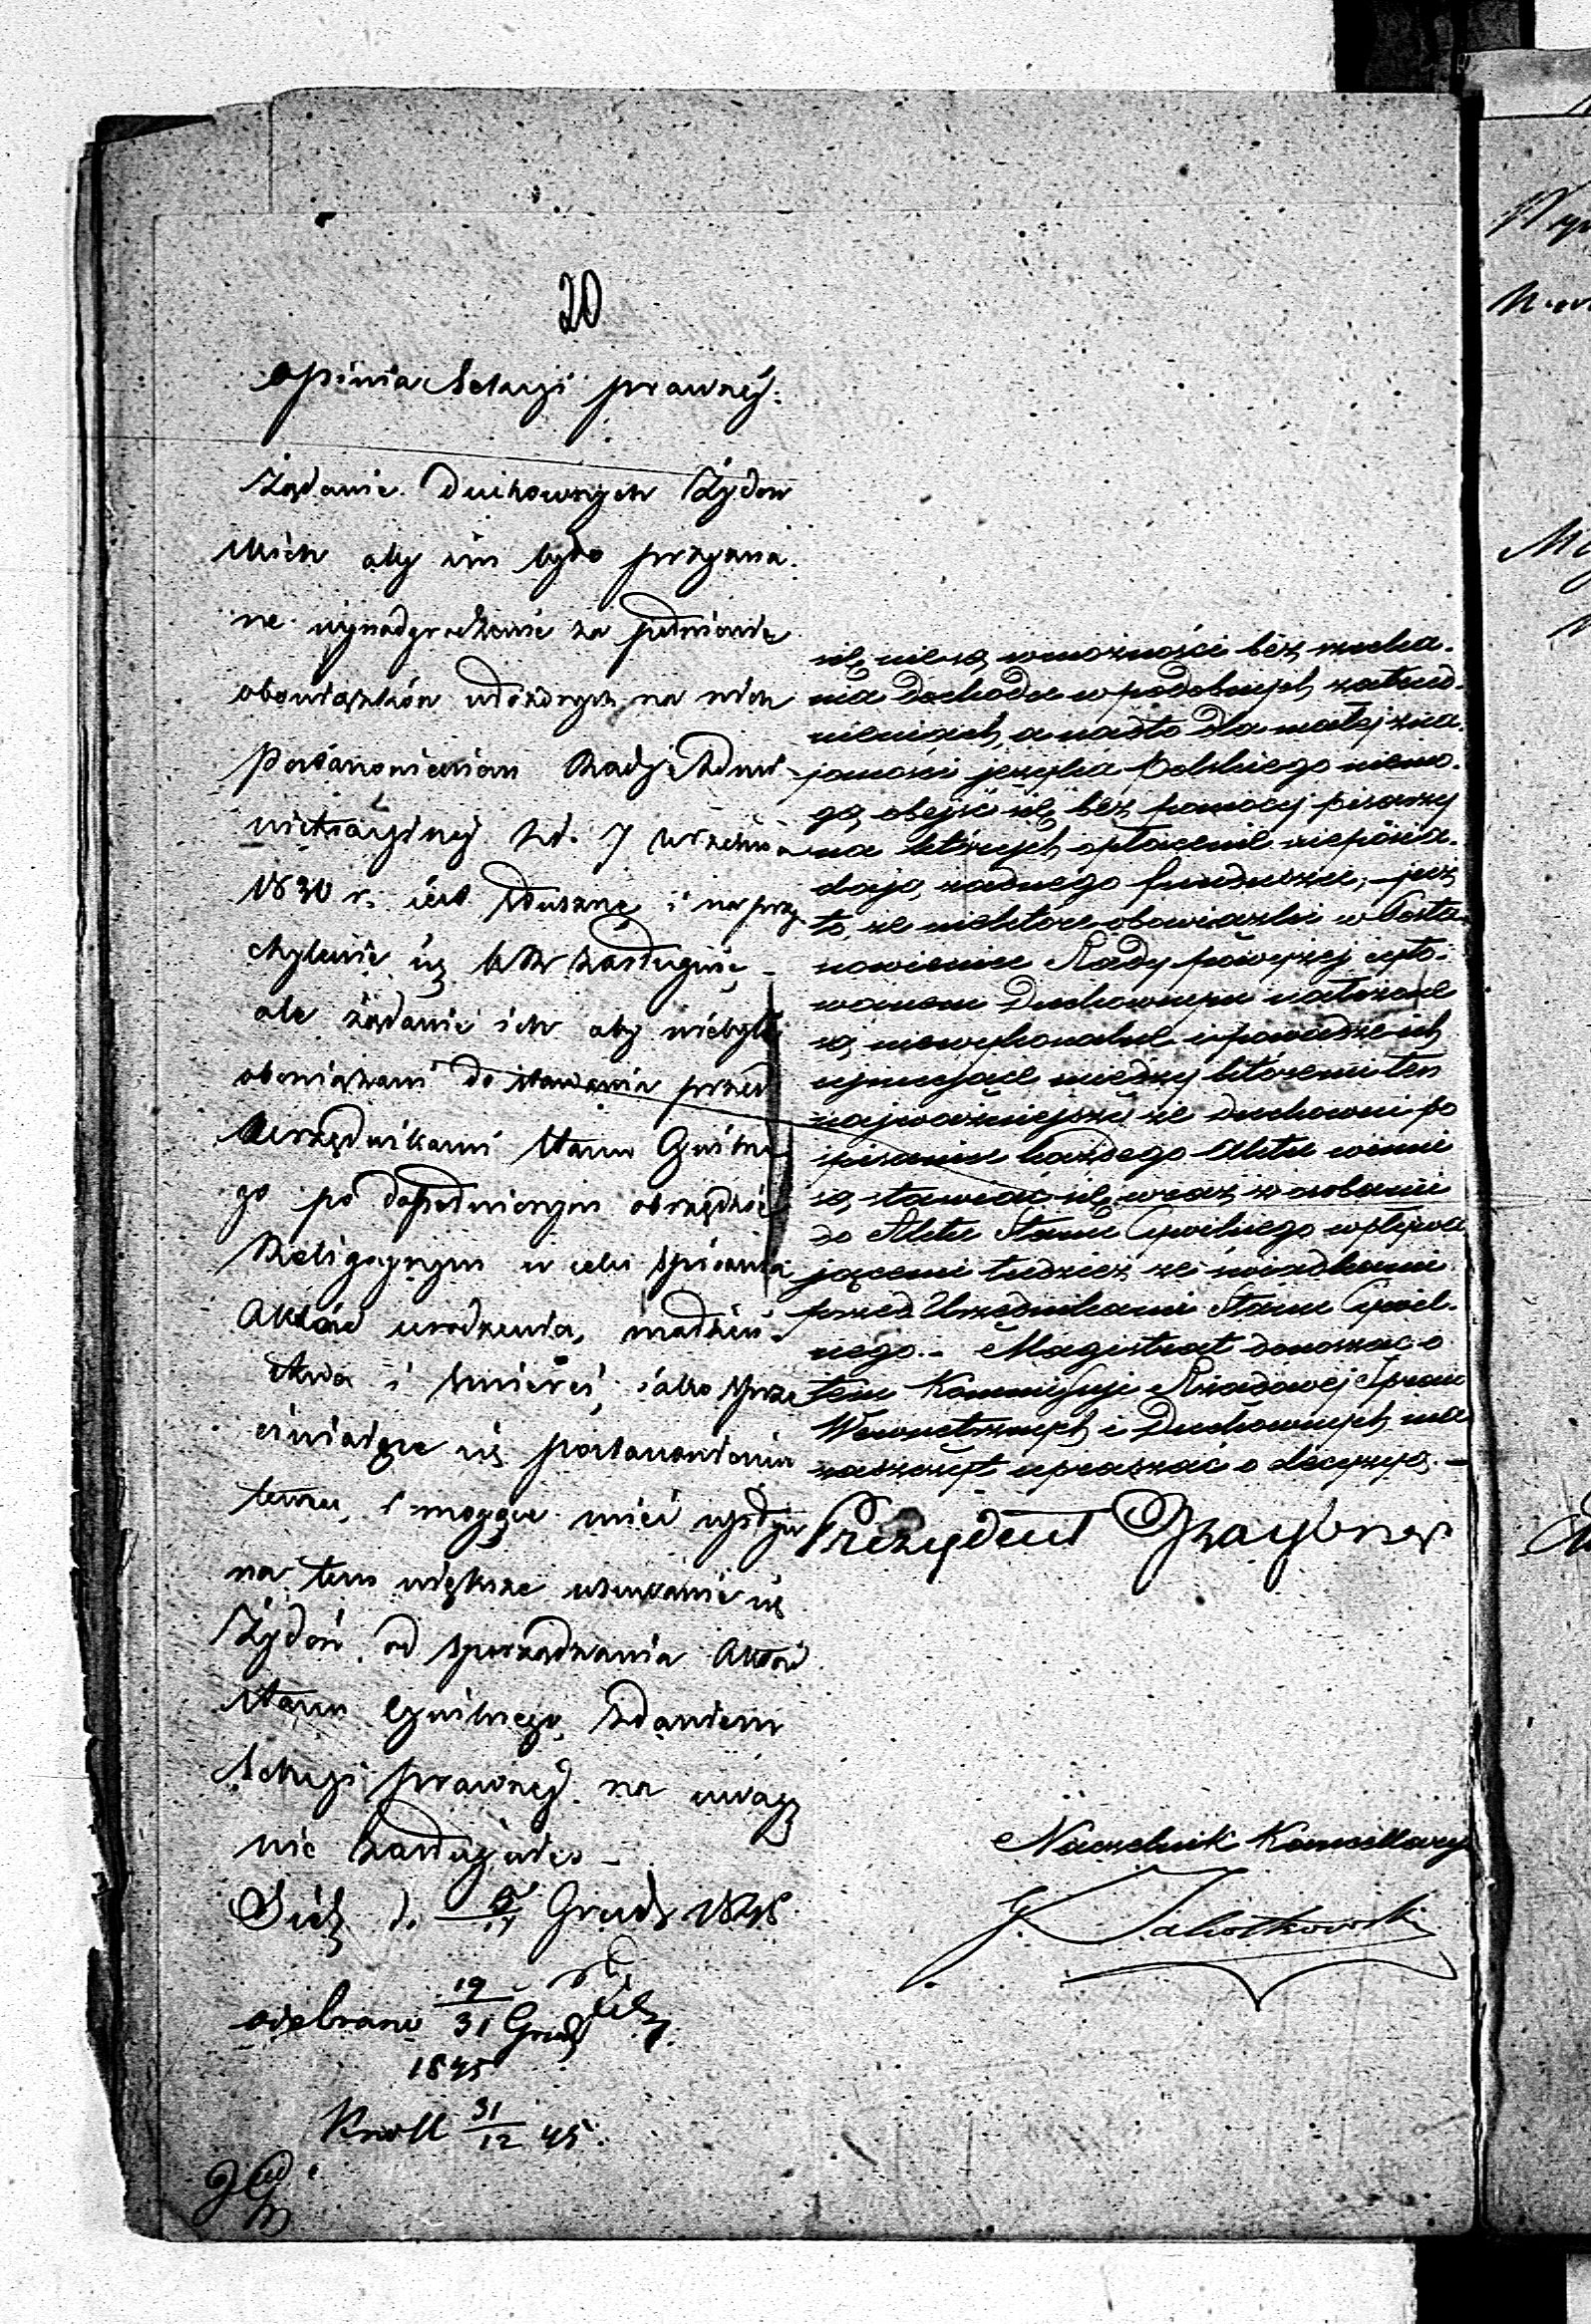 20
Opinia Sekcyi prawnéj.
Żądanie Duchownych Żydow
skich aby im było przyzna
ne wynadgrodzenie za pełnienie
obowiązków włożonych na nich
Postanowieniem Rady Admi-
nistracyjnéj z d. 7 Września
1830 r. jest słuszne i na przy
chylenie się KR zasługuje –
ale żądanie ich aby niebyli
obowiązani do stawania przed
Urzędnikami Stanu Cywilne
go po dopełnionym obrzędzie
Religijnym w celu spisania
Aktów urodzenia, małżeń-
stwa i śmierci, jako sprze
ciwiające się postanowieniu
temu, i mogące mieć wpływ
na tem większe usuwanie się
Żydów od sporządzania Aktów
Stanu Cywilnego, zdaniem
Sekcyi prawnéj na uwagę
nie zasługuje –
d. Grud 1845
odebrano 19/31 Grud
1845
Knoll 31/12 45.
się nie są w możności bez szuka-
nia dochodu w podobnych zatrud-
nieniach, a nadto dla małej zna-
jomości języka Polskiego niemo-
gą obejść się bez pomocy pisarzy
na których opłacenie nieposia-
dają żadnego funduszu; – już
to, że niektóre obowiązki w Posta-
nowieniu Rady powyżej cyto-
wanem Duchownym nałożone
są niewykonalne i powadze ich
ujmujące między któremi ten
najważniejszy że duchowni po
spisaniu każdego Aktu winni
są stawiać się wraz z osobami
do Aktu Stanu Cywilnego wpływa
jącemi tudzież ze świadkami
przed Urzędnikami Stanu Cywil-
nego. – Magistrat donosząc o
tem Kommissyi Rządowej Spraw
Wewnętrznych i Duchownych ma
zaszczyt upraszać o decyzyą. –
Prezydent Graybner
Naczelnik Kancellaryi
J. Jabotkowski